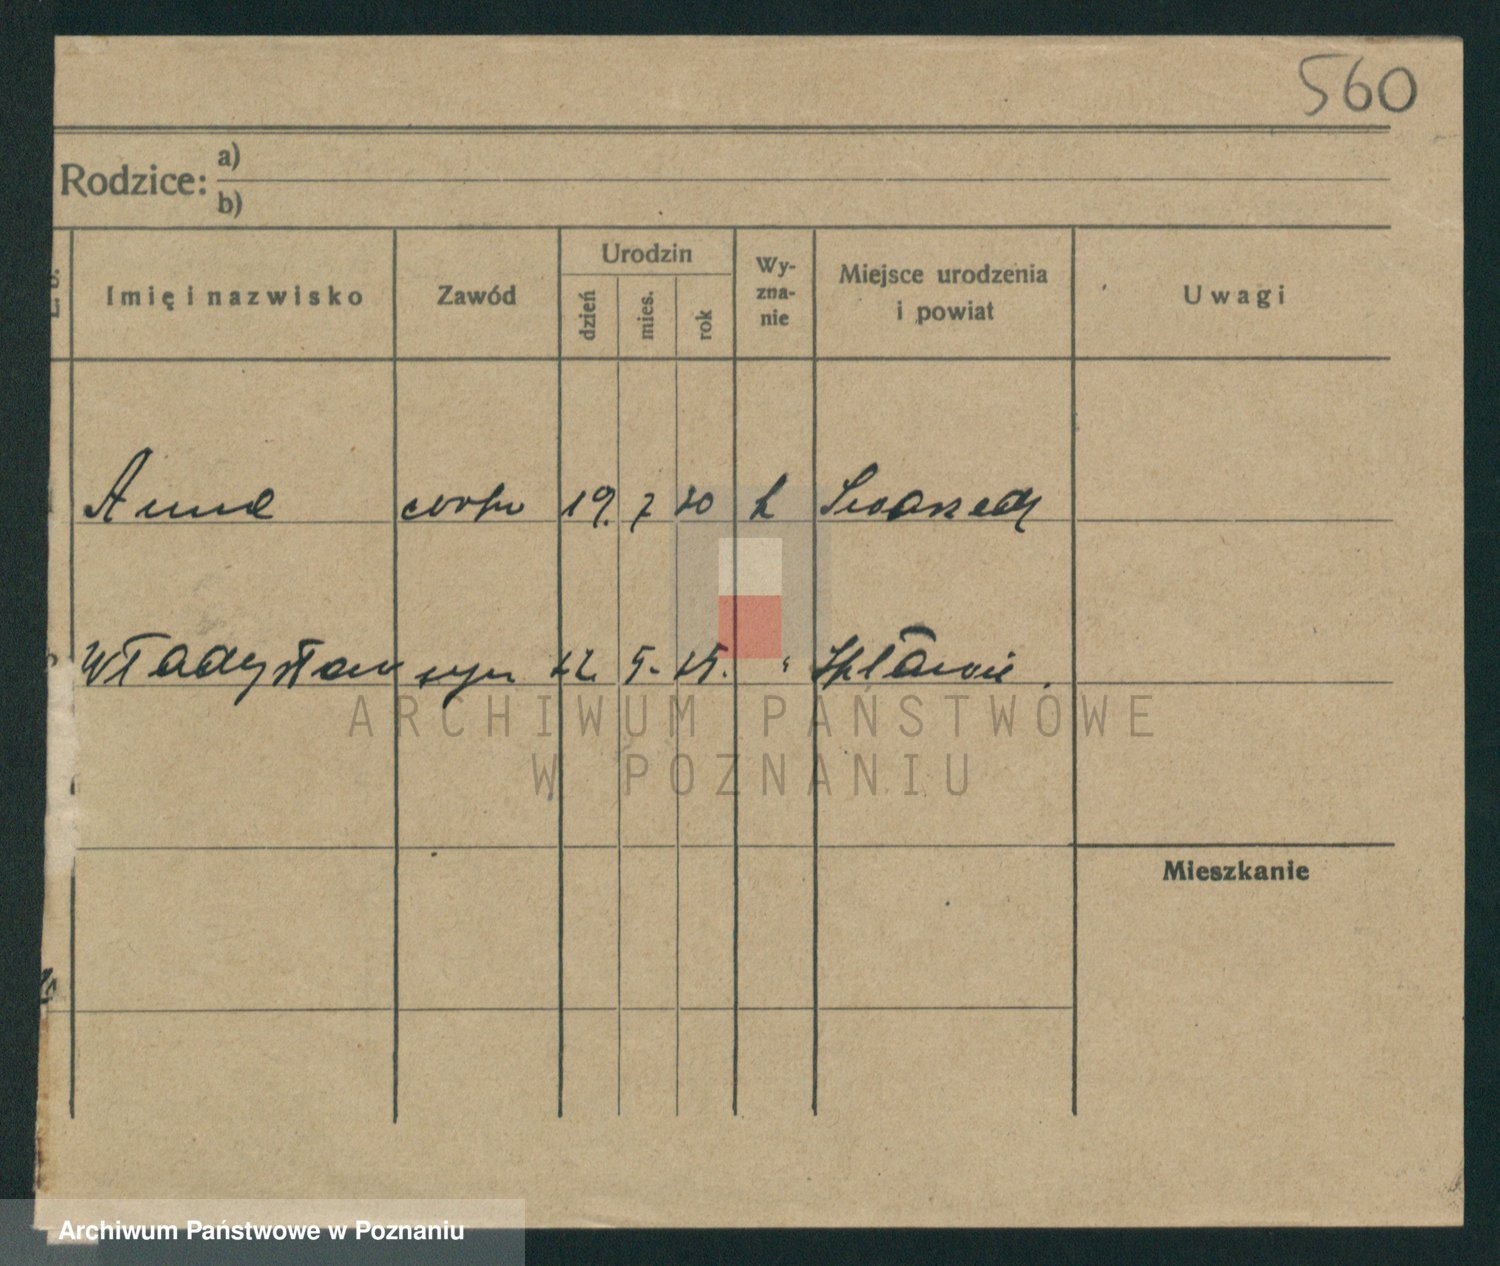 560
Rodzice: a)
b)
Imię i nazwisko Zawód Urodzin dzień mies. rok Wy-zna-nie Miejsce urodzenia i powiat Uwagi
Anna 19. 7 k
Władysław syn 5.
Mieszkanie
ARCHIWUM PAŃSTWOWE
W POZNANIU
Archiwum Państwowe w Poznaniu